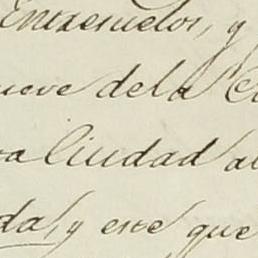 Entresuelos, y
ueve dela
ra Ciudad
da, y este que